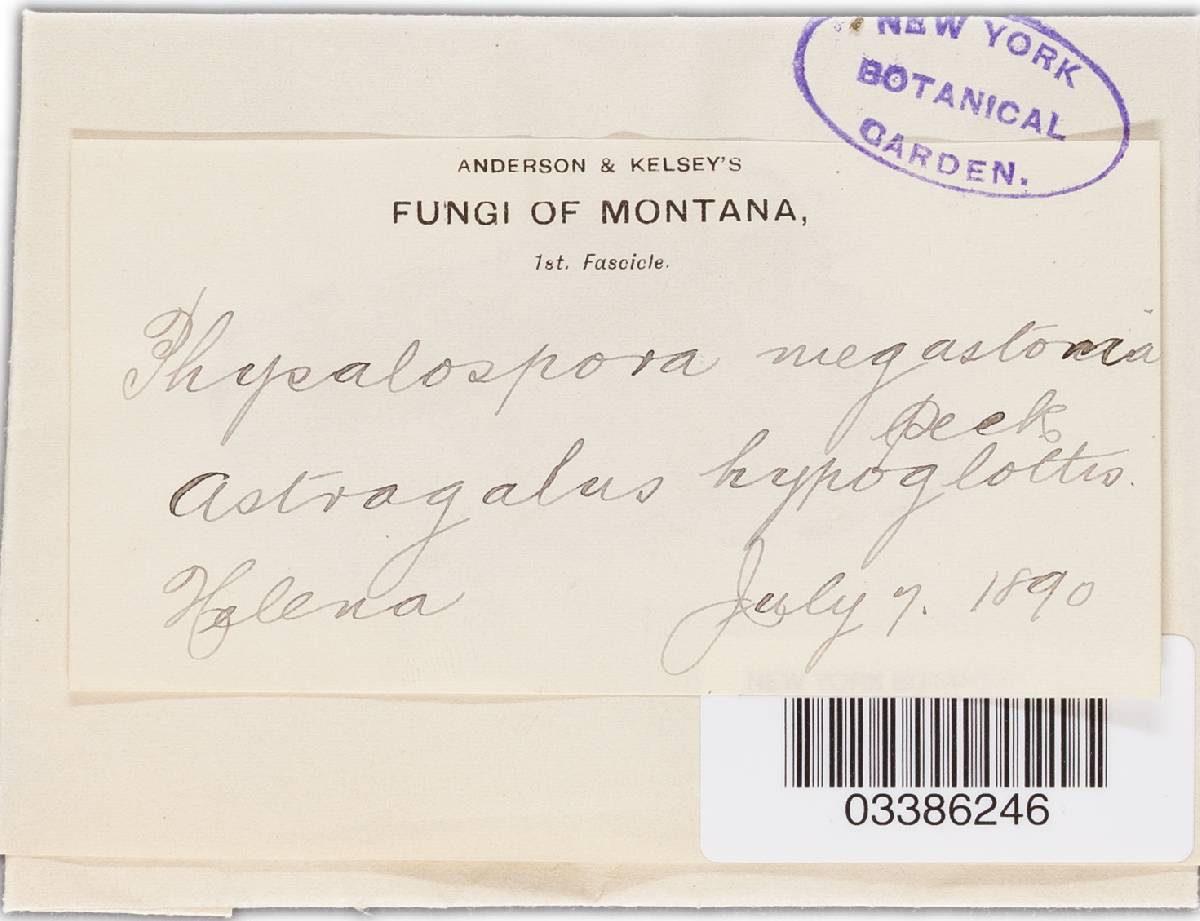 NEW YORK
BOTANICAL
GARDEN.
ANDERSON & KELSEY'S
FUNGI OF MONTANA,
1st. Fascicle.
Physalospora megastoma
Peck
Astragalus hypoglottis.
Helena July 7. 1890
03386246